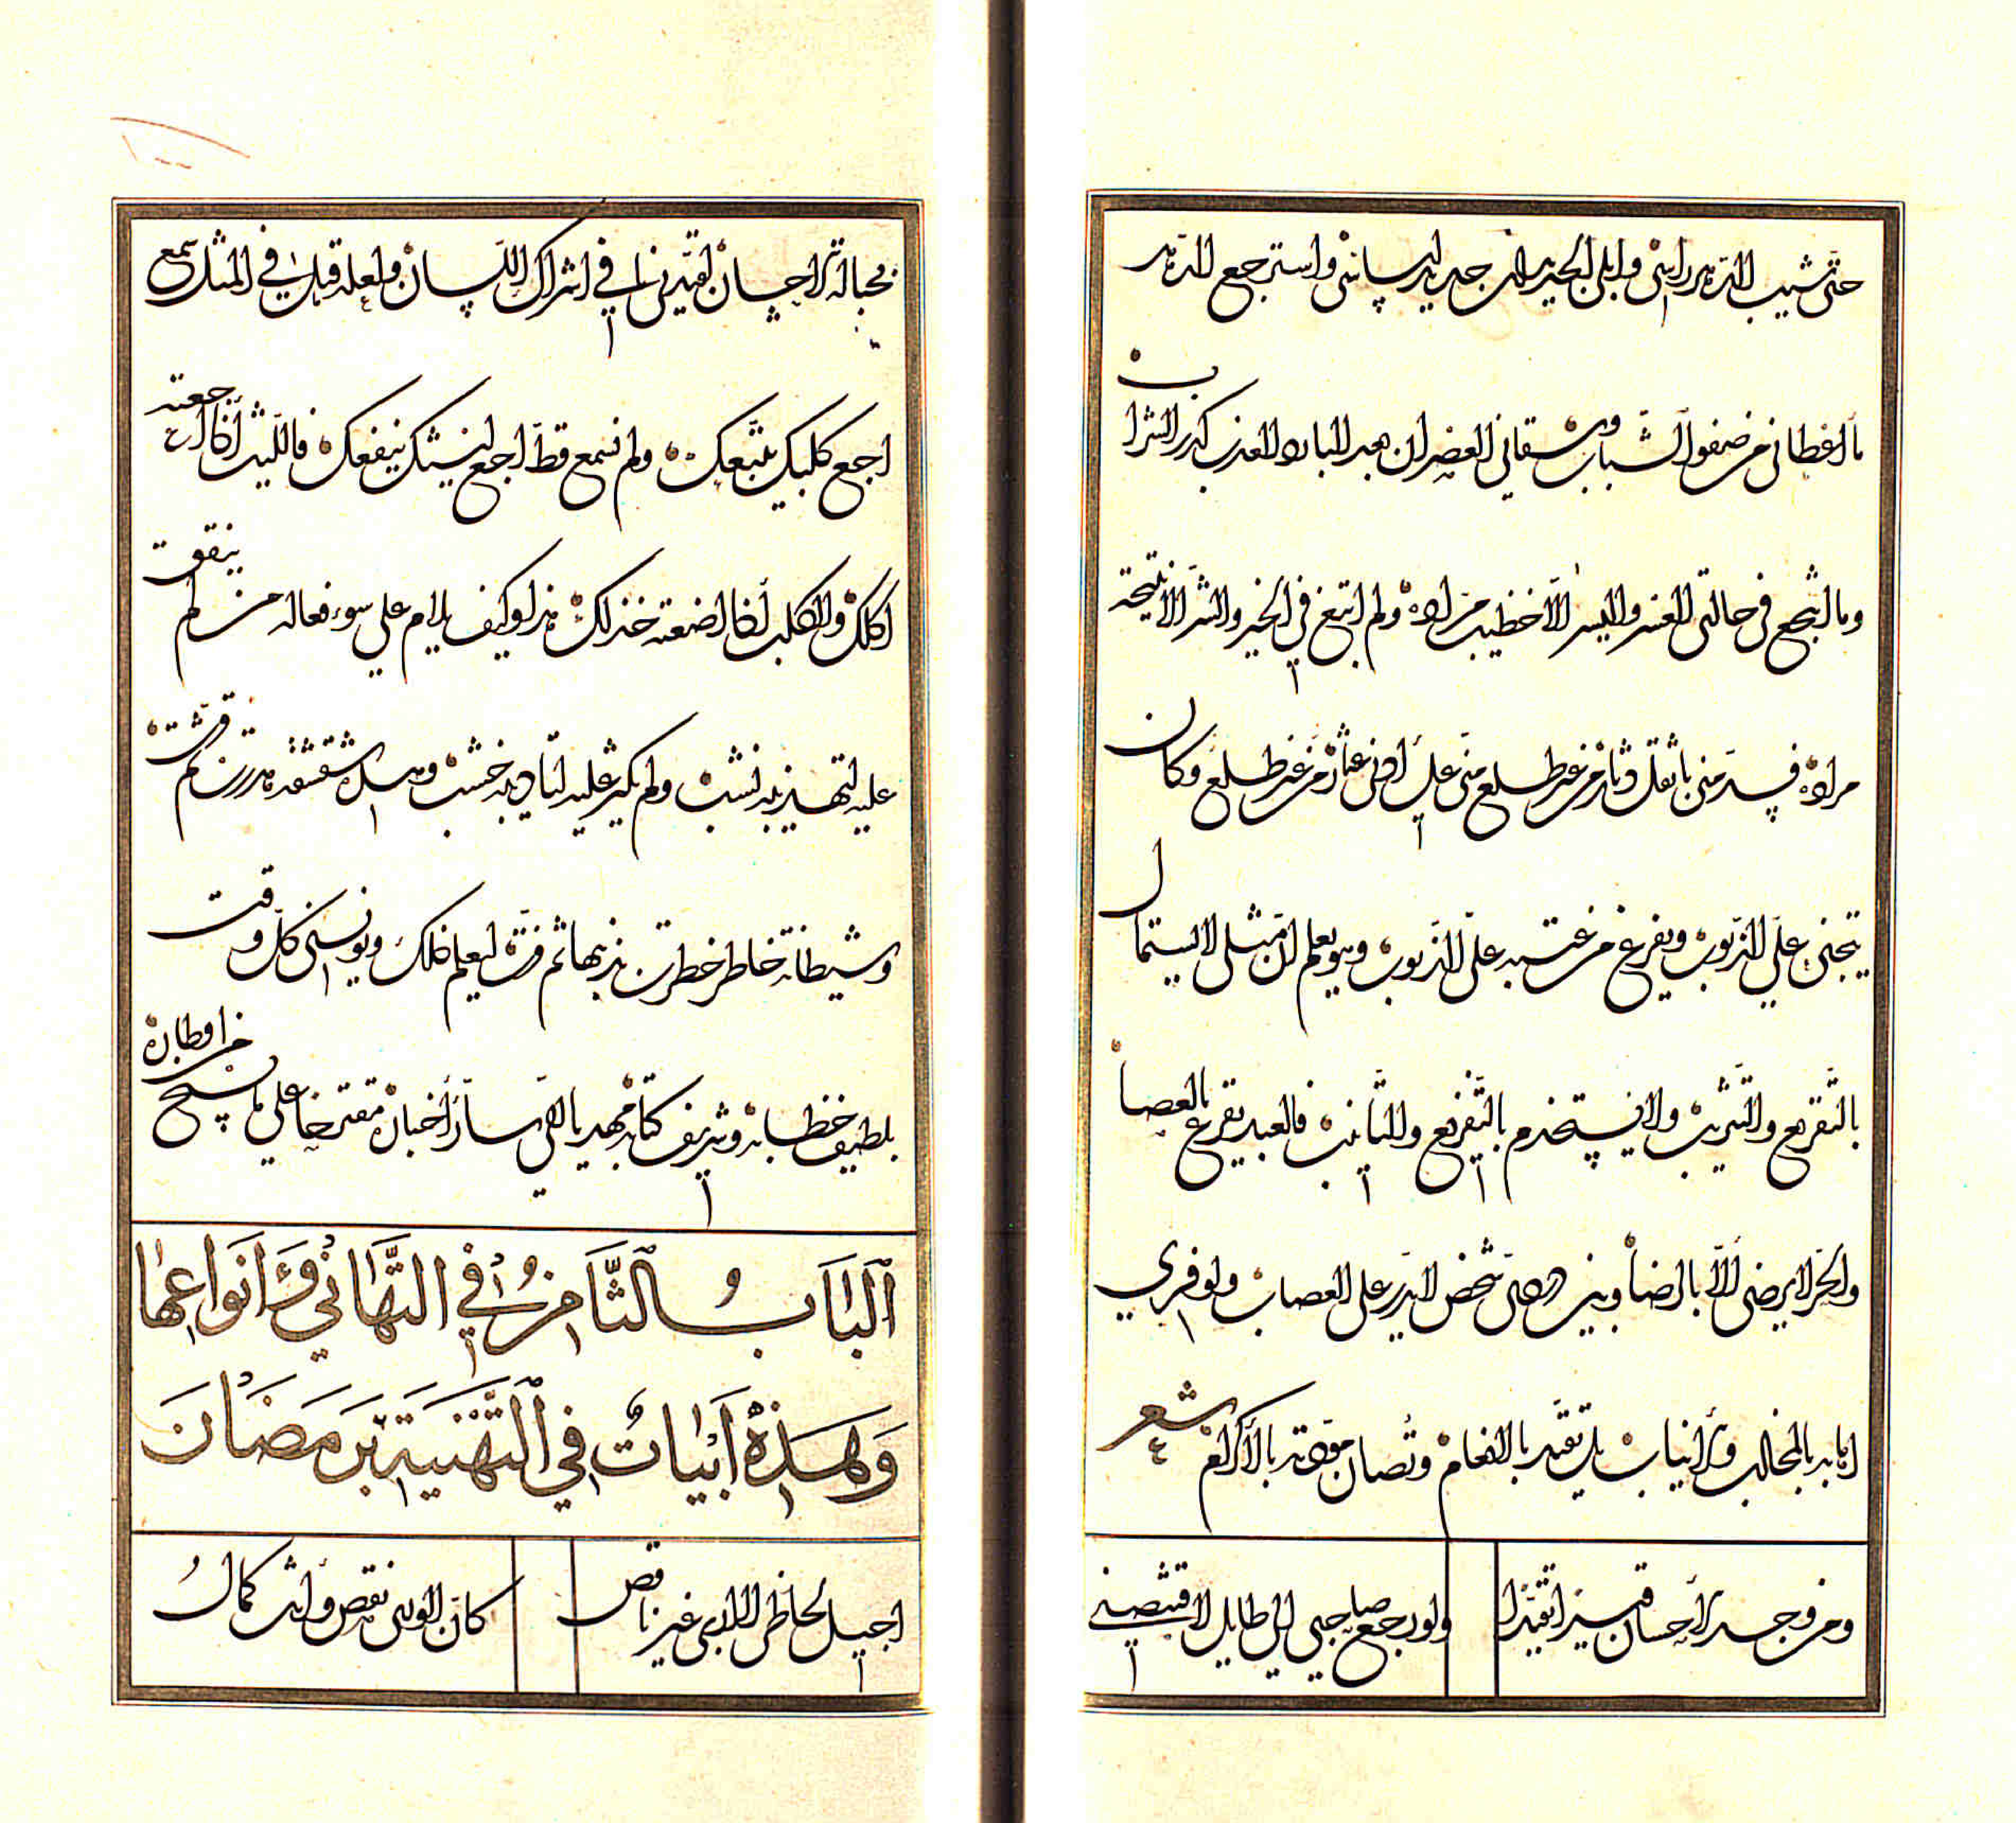 حتى شيب الدهر راسى وابلى الجديدان جديد لباسى واسترجع الدهر
ما اعطانى من صفو الشباب وسقانى العصران بعد البارد العذب كدر الشراب
وما انتجع فى حالتى العسر واليسر الا خطيب مراده ولم ابتغ فى الخير والشر الا نتيجة
مراده من غير طلع منى على ادنى عثاره من غير طلع وكان
يتجنى على الذنوب ويفرغ من عتبه على الذنوب وهو يعلم ان مثلى لا يستمال
بالتقريع والتثريب ولا يستخدم بالتقريع والتانيب فالعبد يقرع بالعصا
والحر لا يرضى الا بالرضا وبين شخص لا يدر على العصاب ولو فرى
اهابه بالمخالب والانياب بل تقيد بالانعام وتصان مودته بالاكرام شعر
ومن وجد الاحسان قيدا تقيدا
ولو رجع صاحبى الى طايل
بحبالة الاحسان لقيدنى فى اشراك اللسان ولعله قيل فى المثل سمع
اجع كلبك يتبعك ولم نسمع قط اجع ليثك ينفعك فالليث اذا اجعته
اكلك والكلب اذا اضعته خذلك هذا وكيف يلام على سوء فعاله من لم
عليه لتهذيبه ولم يكسر عليه لتاديبه خشب شقشقه هدرت ثم قرت
وشيطانه خاطر خطرت بذهنها ثم فرت ليعلم ذلك ويونسنى كل وقت
بلطيف خطابه وشريف كتابه مهديا الى سار اخباره مقترحا على ما يسنح من اوطاره
اَلْبَابُ الثَّامِنُ فِي التَّهَانِي وَاَنْوَاعِهَا
وَهٰذِهِ اَبْيَاتٌ فِي التَّهْنِيَةِ بِرَمَضَانَ
اجيل لحاظى لا ارى غير ناقص
كان الورى نقص وانت كمال